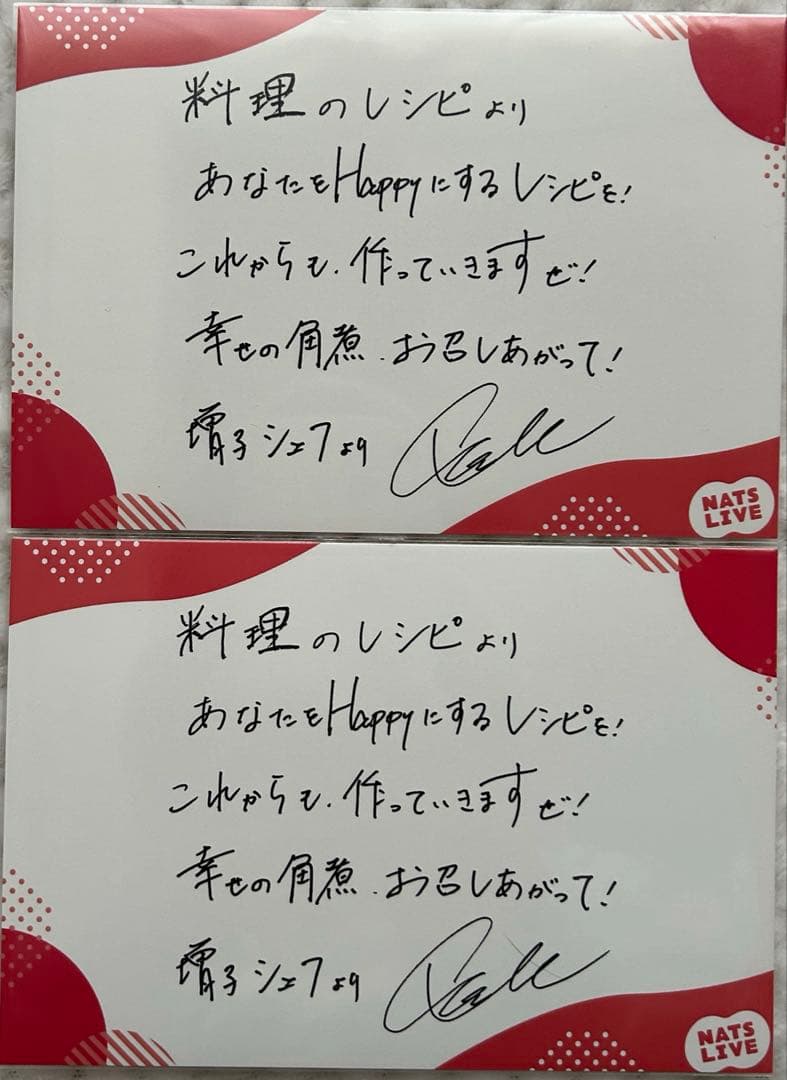 料理のレシピより
あなたをHappyにするレシピを!
これからも、作っていきますぜ!
幸せの角煮、お召しあがって!
増子シェフより
NATS
LIVE
料理のレシピより
あなたをHappyにするレシピを!
これからも、作っていきますぜ!
幸せの角煮、お召しあがって!
増子シェフより
NATS
LIVE